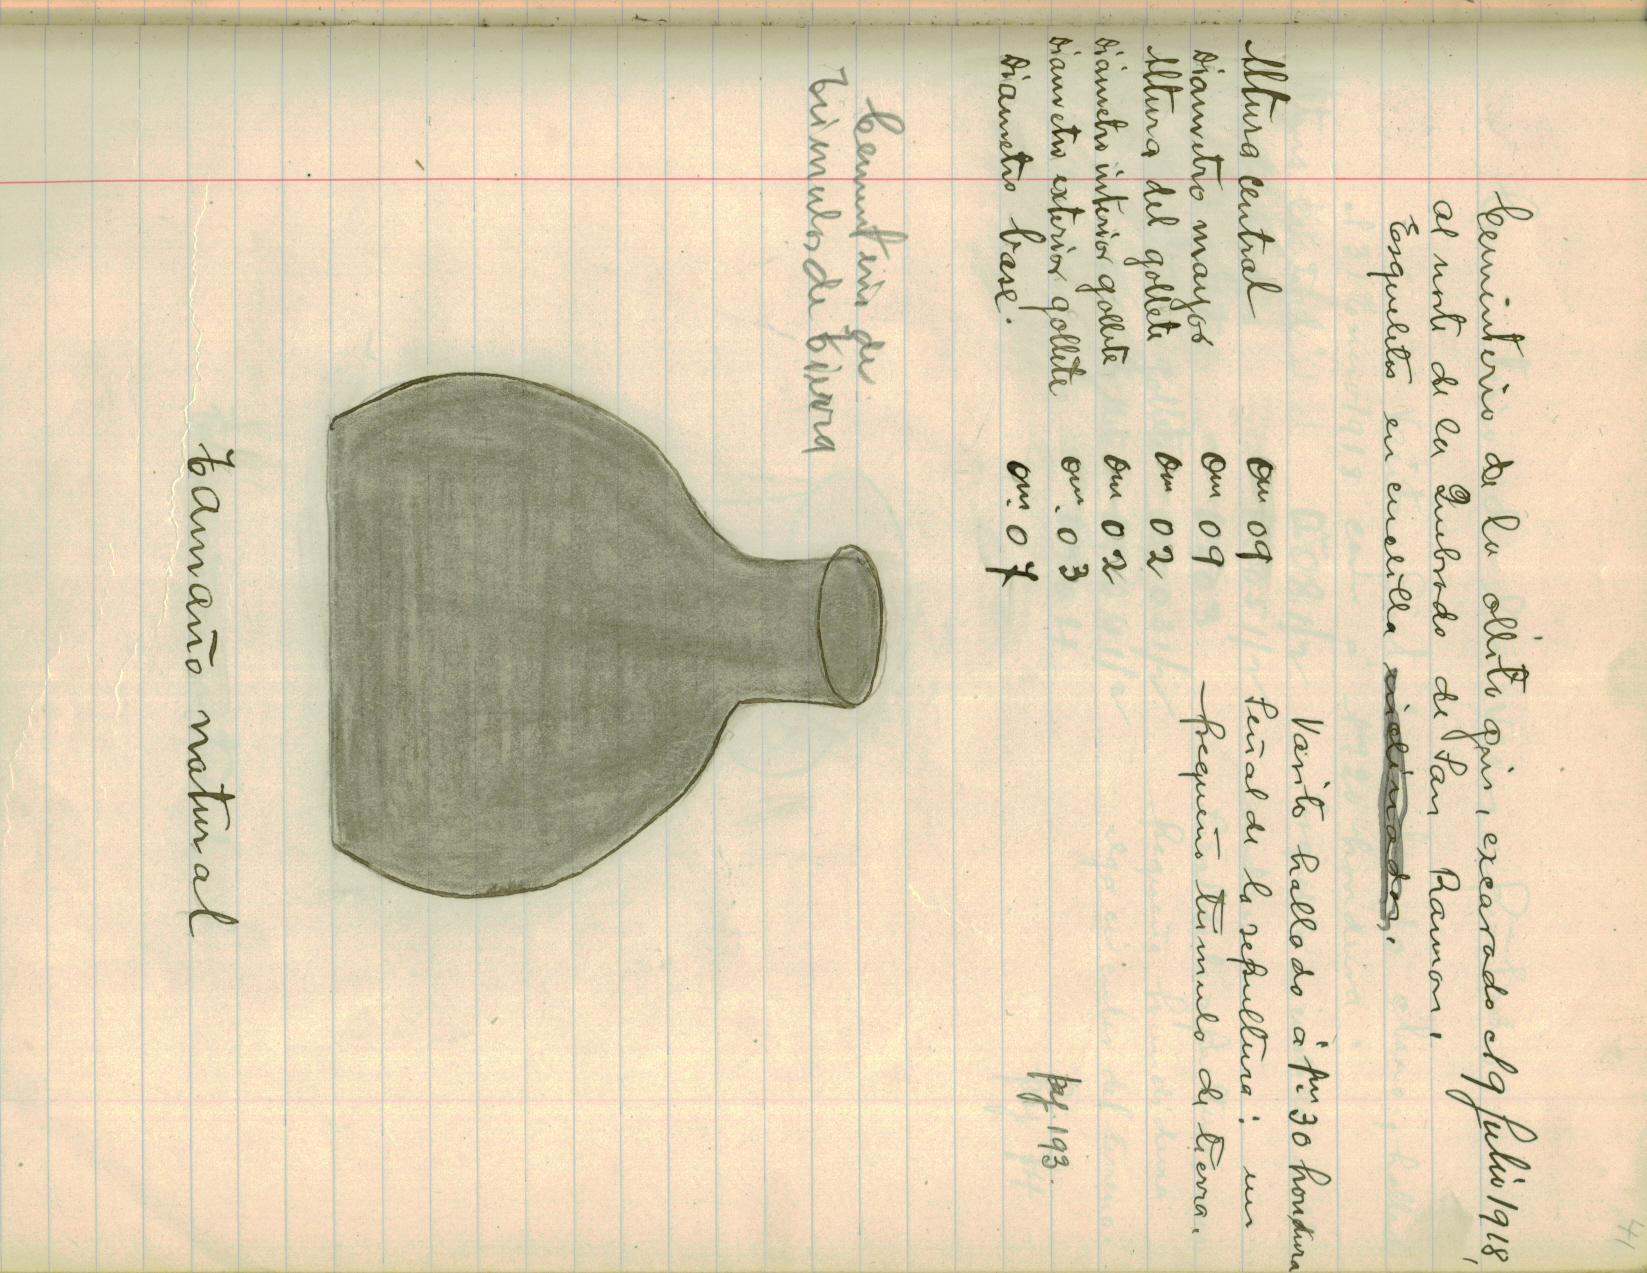 41
Cementerio de la ollita gris, excavado el 9 Julio 1918,
al norte de la Quebrada de San Ramon,
Esqueletos en cuclilla inclinados,
Vasito hallado á 1m.30 hondura
Señal de la sepultura: un
pequeño túmulo de tierra.
Altura central 0m 09
Diametro mayor 0m 09
Altura del gollete 0m 02
Diámetro interior gollete 0m 02
Diametro exterior gollete 0m. 03
Diametro base. 0m. 07
pag. 193.
Cementerio de
túmulos de tierra
tamaño natural